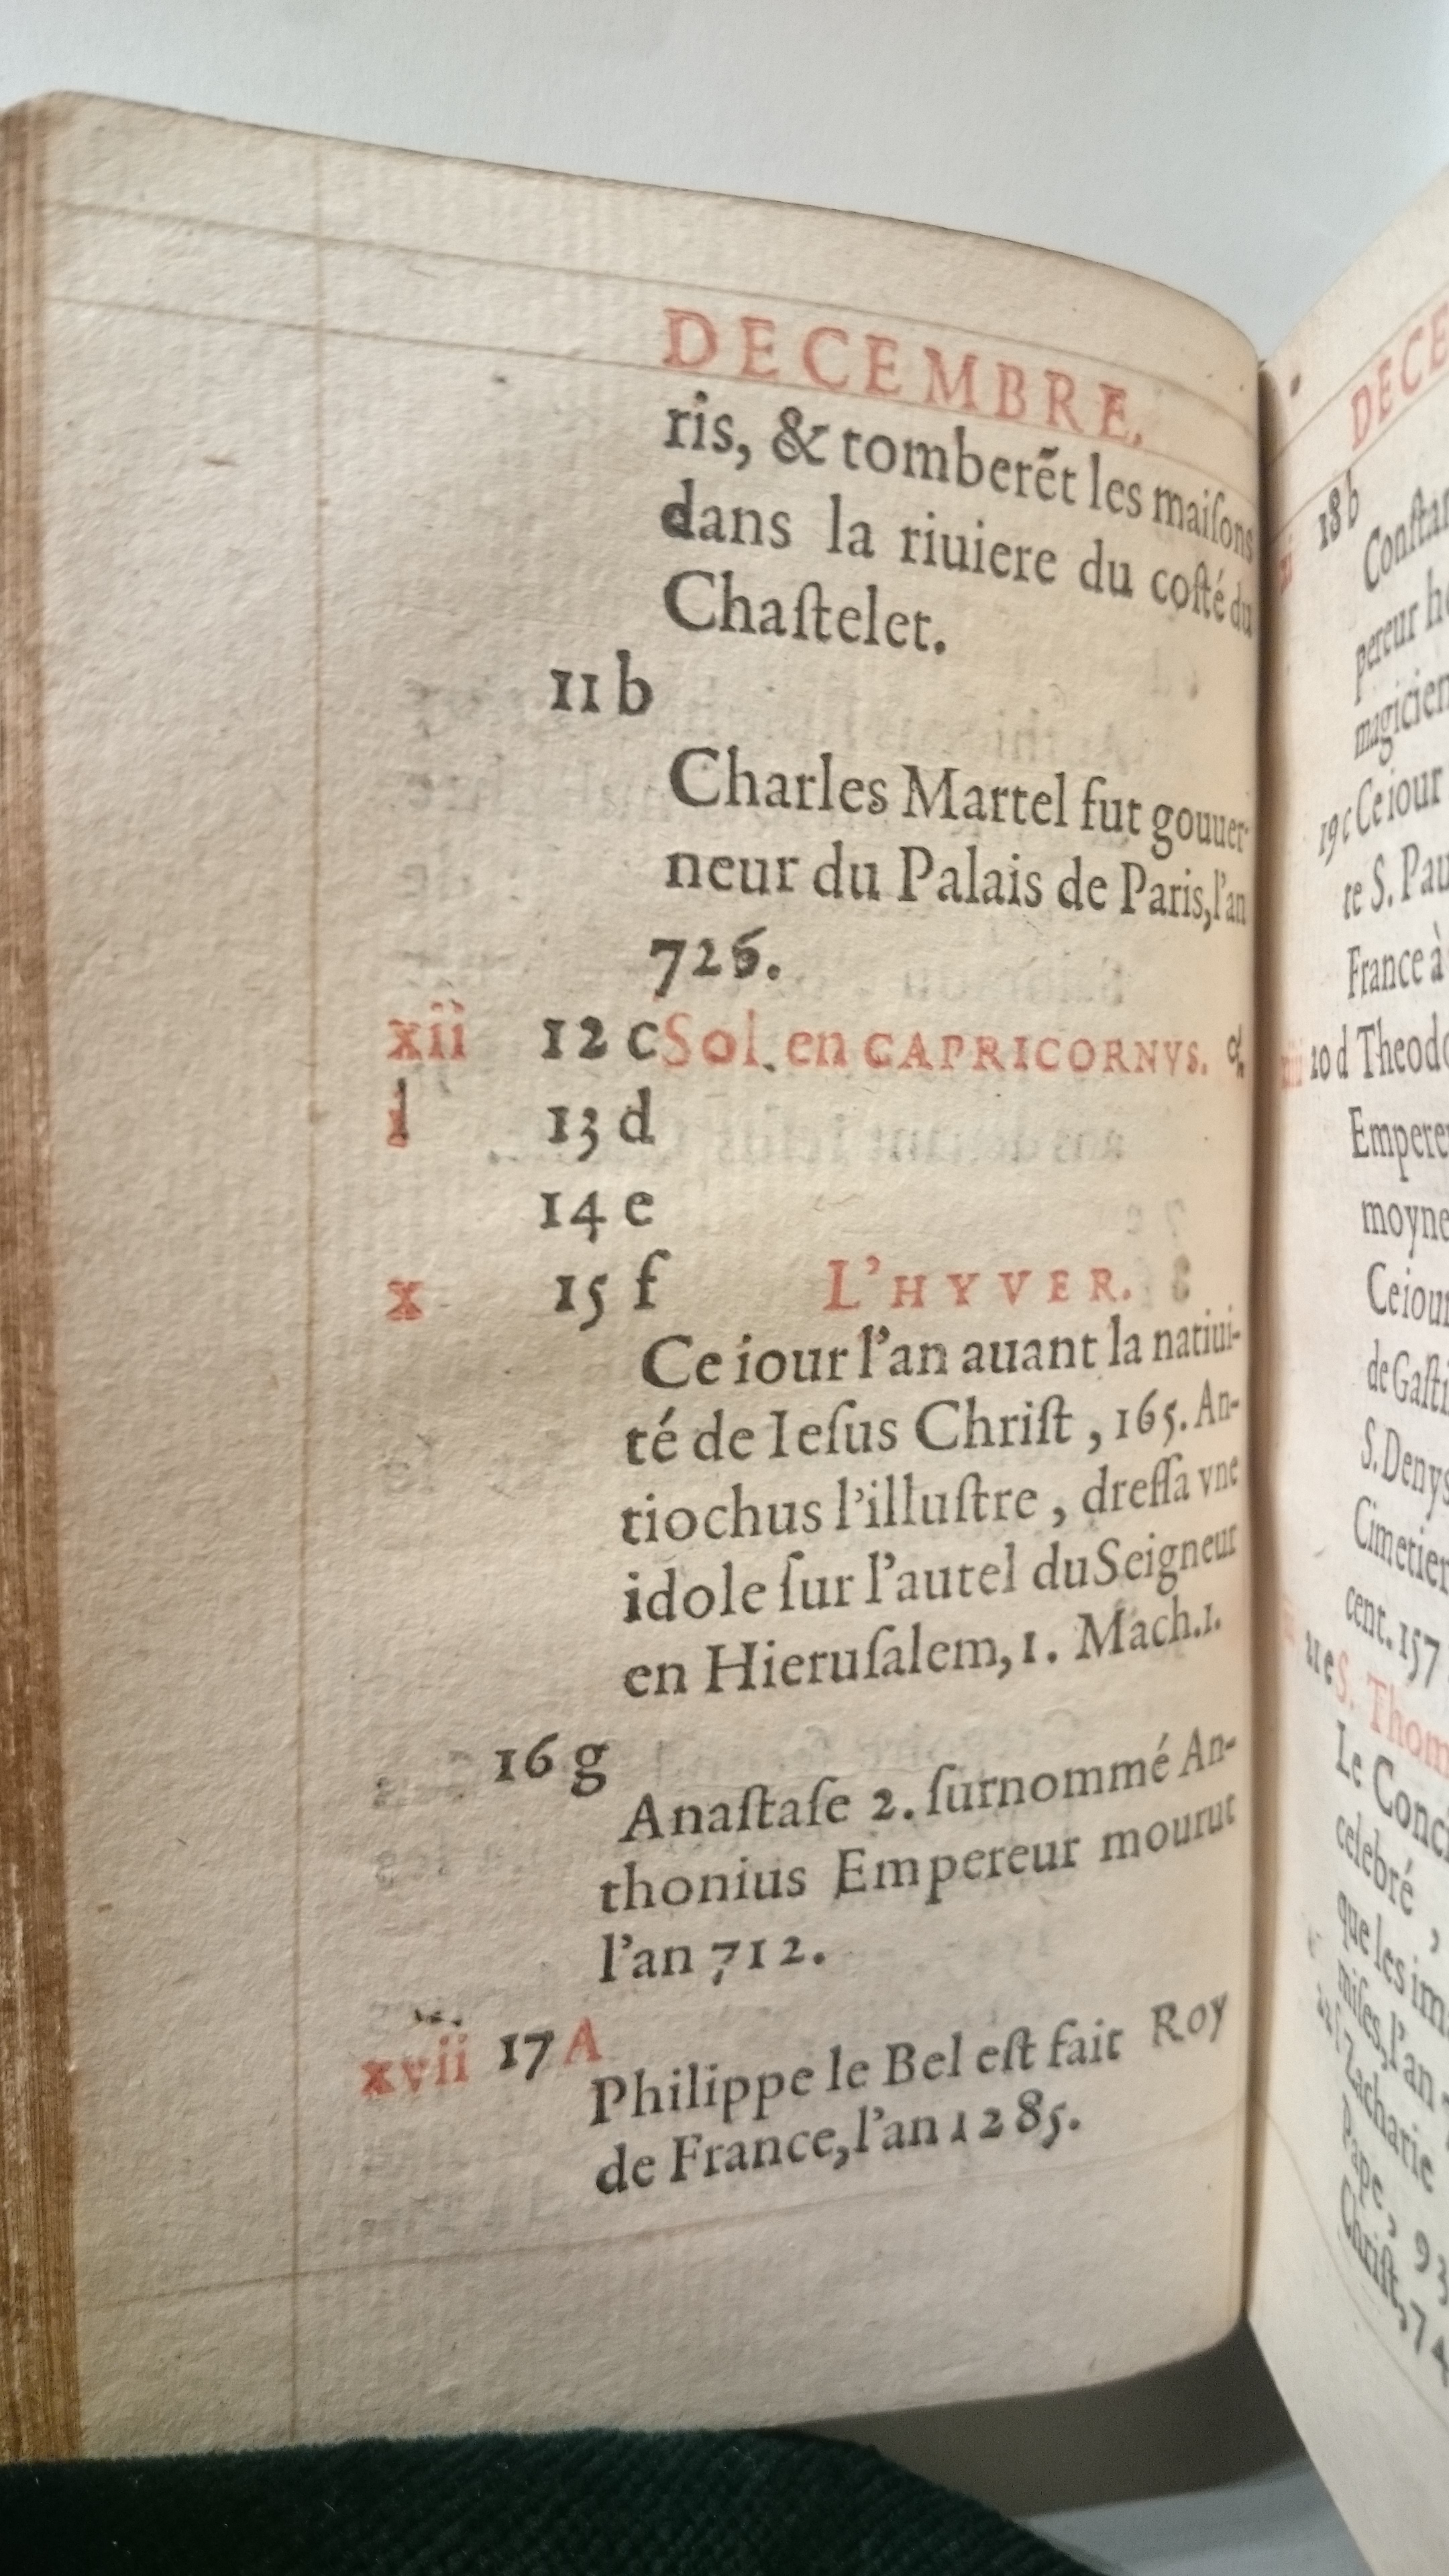 DECEMBRE.
ris, & tomberẽt les maiſons
dans la riuiere du coſté du
Chaſtelet.
11 b
Charles Martel fut gouuer-
neur du Palais de Paris, l'an
726.
xii 12 c Sol en CAPRICORNVS.
i 13 d
14 e
x 15 f L'HYVER.
Ce iour l'an auant la natiui-
té de Ieſus Chriſt, 165. An-
tiochus l'illuſtre, dreſſa vne
idole ſur l'autel du Seigneur
en Hieruſalem, 1. Mach. 1.
16 g
Anaſtaſe 2. ſurnommé An-
thonius Empereur mourut
l'an 712.
xvii 17 A
Philippe le Bel eſt fait Roy
de France, l'an 1285.
DECE
18 b
Conſtan
pereur h
magicien
19 c Ce iour
te S. Pau
France à
20 d Theodo
Empere
moyne
Ce iour
de Gaſti
S. Denys
Cimetier
cent. 157
21 e S. Thom
Le Conci
celebré,
que les im
miſes, l'an
Zacharie
Pape, 93
Chriſt, 74